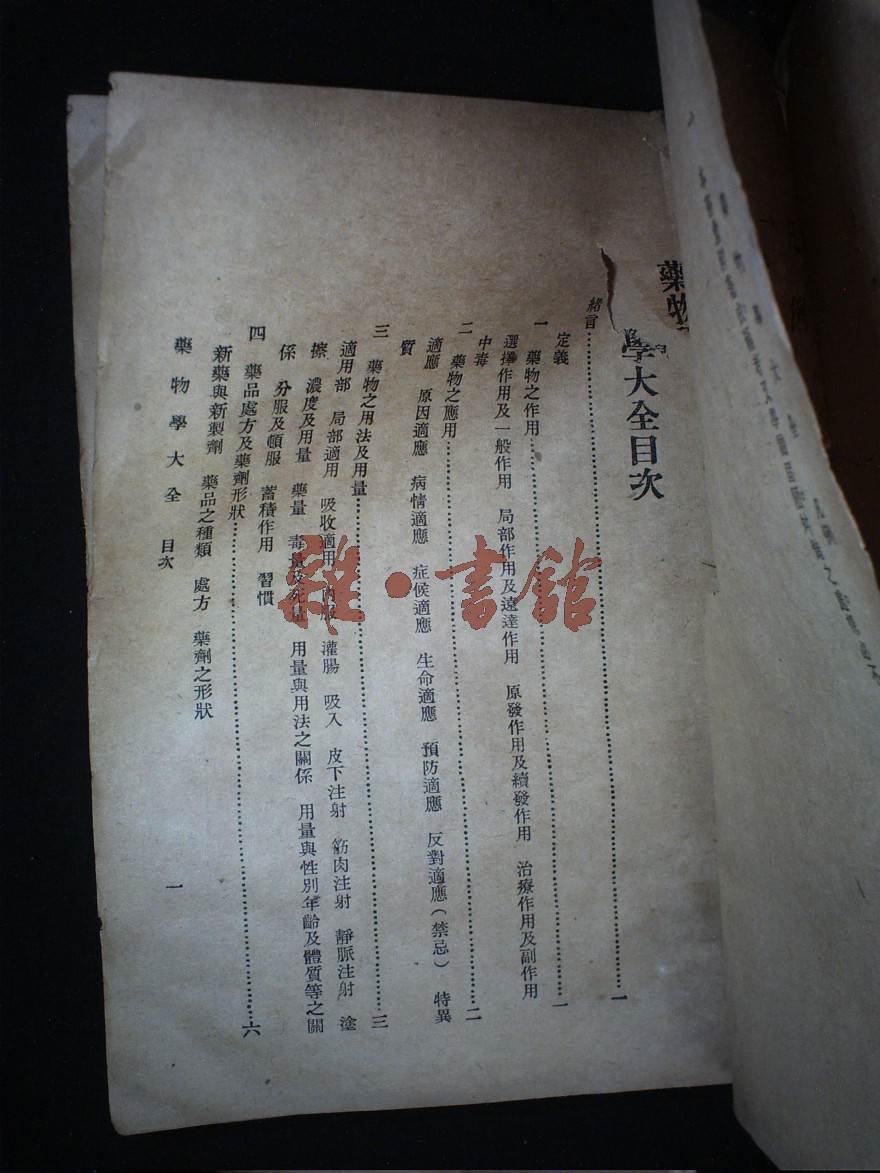 藥物學大全目次
緒言……一
定義
一 藥物之作用……一
選擇作用及一般作用 局部作用及遠達作用 原發作用及續發作用 治療作用及副作用
中毒
二 藥物之應用……二
適應 原因適應 病情適應 症候適應 生命適應 預防適應 反對適應(禁忌) 特異
質
三 藥物之用法及用量……三
適用部 局部適用 吸收適用 內服 灌腸 吸入 皮下注射 筋肉注射 靜脈注射 塗
擦 濃度及用量 藥量 毒量及死量 用量與用法之關係 用量與性別年齡及體質等之關
係 分服及頓服 蓄積作用 習慣
四 藥品處方及藥劑形狀……六
新藥與新製劑 藥品之種類 處方 藥劑之形狀
藥物學大全 目次 一
雜·書館